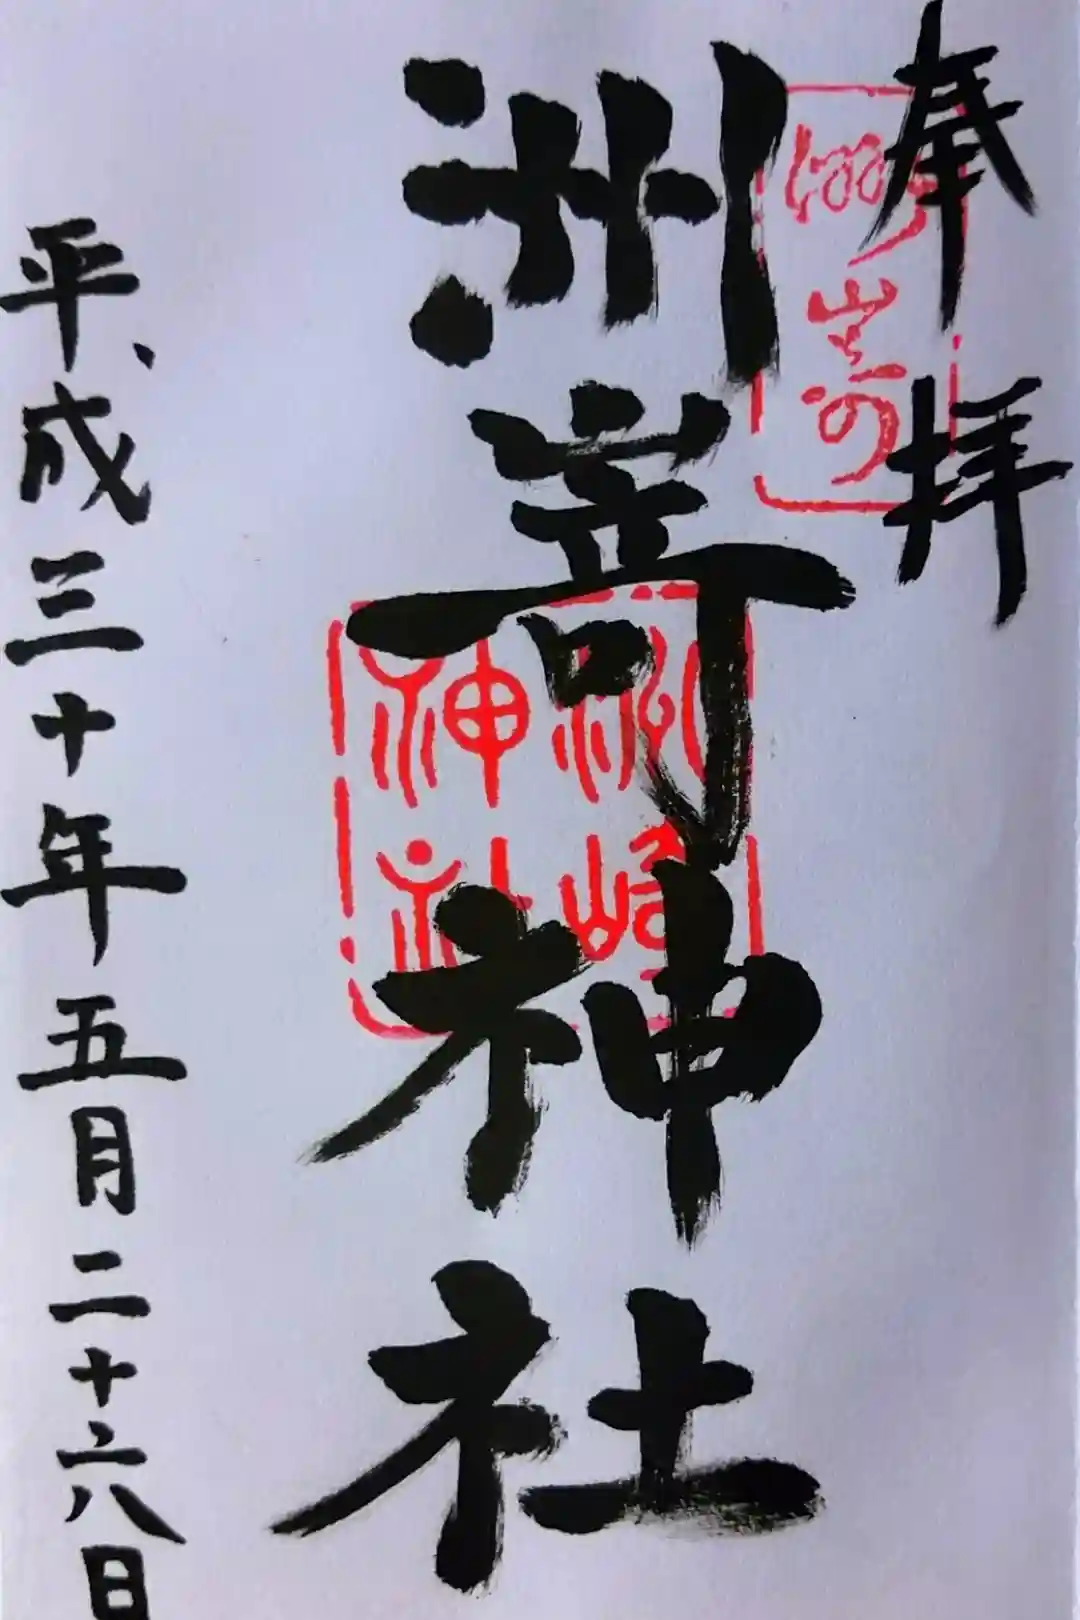 奉拝
洲嵜神社
洲崎
神社
平成三十年五月二十六日